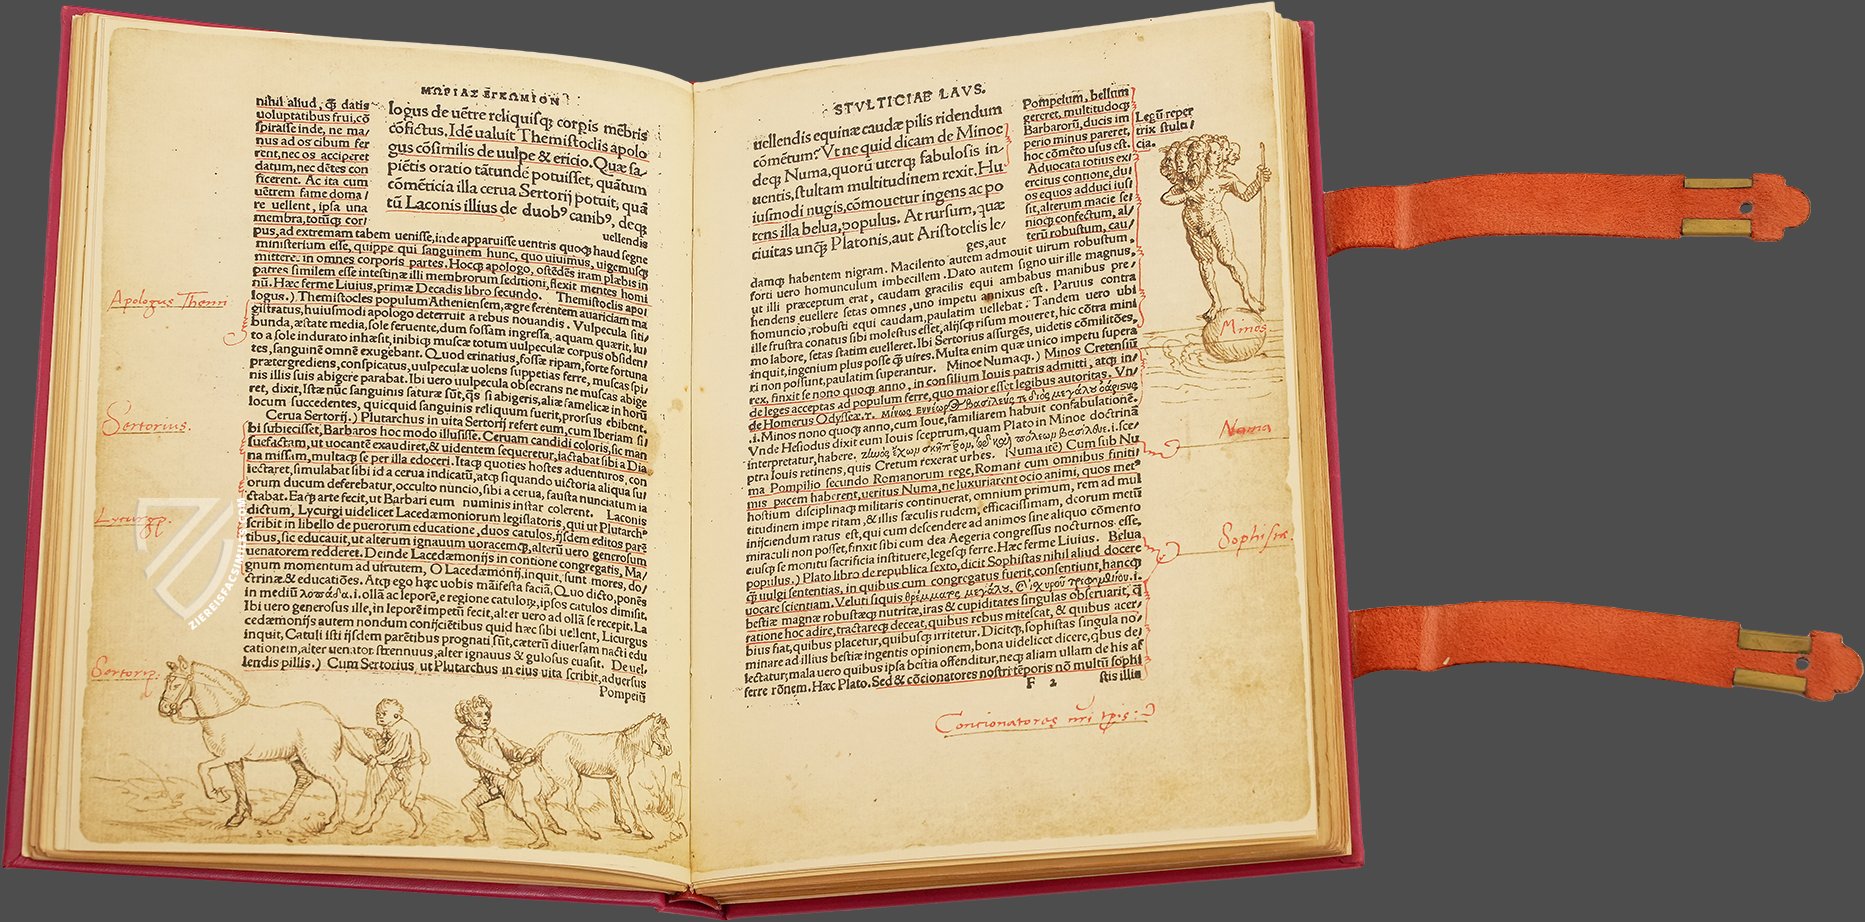 ΜΩΡΙΑΣ ΕΓΚΩΜΙΟΝ
nihil aliud, q̃ datis
uoluptatibus frui, cō
spirasse inde, ne ma/
nus ad os cibum fer
rent, nec os acciperet
datum, nec dētes con
ficerent. Ac ita cum
uētrem fame doma/
re uellent, ipsa una
membra, totūq; cor/
logus de uētre reliquisq; corpis mēbris
cōfictus. Idē ualuit Themistoclis apolo
gus cōsimilis de uulpe & ericio. Quæ sa/
piētis oratio tātunde potuisset, quātum
cōmēticia illa cerua Sertorij potuit, quā
tū Laconis illius de duobꝰ canibꝰ, deq;
uellendis
pus, ad extremam tabem uenisse, inde apparuisse uentris quoq; haud segne
ministerium esse, quippe qui sanguinem hunc, quo uiuimus, uigemusq;
mittere in omnes corporis partes. Hocq; apologo, ostēdēs iram plæbis in
patres similem esse intestinæ illi membrorum seditioni, flexit mentes homi
nū. Hæc ferme Liuius, primæ Decadis libro secundo. Themistoclis apo/
logus.) Themistocles populum Atheniensem, ægre ferentem auariciam ma
gistratus, huiusmodi apologo deterruit a rebus nouandis. Vulpecula siti/
bunda, æstate media, sole feruente, dum fossam ingressa, aquam quærit, lu/
to a sole indurato inhæsit, inibiq; muscæ totum uulpeculæ corpus obsiden/
tes, sanguinē omnē exugebant. Quod erinatius, fossæ ripam, forte fortuna
prætergrediens, conspicatus, uulpeculæ uolens suppetias ferre, muscas spi/
nis illis suis abigere parabat. Ibi uero uulpecula obsecrans ne muscas abige
ret, dixit, Istæ nūc sanguinis saturæ sūt, q̄s si abigeris, aliæ famelicæ in horū
locum succedentes, quicquid sanguinis reliquum fuerit, prorsus ebibent.
Cerua Sertorij.) Plutarchus in uita Sertorij refert eum, cum Iberiam si/
bi subiecisset, Barbaros hoc modo illusisse. Ceruam candidi coloris, sic man
suefactam, ut uocantē exaudiret, & uidentem sequeretur, iactabat sibi a Dia
na missam, multaq; se per illa edoceri. Itaq; quoties hostes aduenturos, con
iectaret, simulabat sibi id a cerua indicatū, atq; si quando uictoria aliqua su/
orum ducum deferebatur, occulto nūcio, sibi a cerua, fausta nunciatum ia
ctabat. Eaq; arte fecit, ut Barbari eum numinis instar colerent. Laconis
dictum, Lycurgi uidelicet Lacedæmoniorum legislatoris, qui ut Plutarchꝰ
scribit in libello de puerorum educatione, duos catulos, ijsdem editos parē
tibus, sic educauit, ut alterum ignauum uoracemq;, alterū uero generosum
uenatorem redderet. Deinde Lacedæmonijs in contione congregatis, Ma/
gnum momentum ad uirtutem, O Lacedæmonij, inquit, sunt mores, do/
ctrinæ & educatiōes. Atq; ego hæc uobis māifesta faciā. Quo dicto, ponēs
in mediū λοπάδα .i. ollā ac leporē, e regione catulorꝝ, ipsos catulos dimisit.
Ibi uero generosus ille, in leporē impetū fecit, alter uero ad ollā se recepit. La
cedæmonijs autem nondum conijciētibus quid hæc sibi uellent, Licurgus
inquit, Catuli isti ijsdem parētibus prognati sūt, cæterū diuersam nacti edu
cationem, alter uenator strennuus, alter ignauus & gulosus euasit. De uel/
lendis pillis.) Cum Sertorius, ut Plutarchus in eius uita scribit, aduersus
Pompeiū
Apologus Themi
Sertorius.
Lycurgꝰ.
Sertoriꝰ.
ZIEREISFACSIMILES.COM
STVLTICIAE LAVS.
uellendis equinæ caudæ pilis ridendum
cōmētum? Vt ne quid dicam de Minoe
deq; Numa, quorū uterq; fabulosis in/
uentis, stultam multitudinem rexit. Hu
iusmodi nugis, cōmouetur ingens ac po
tens illa belua, populus. At rursum, quæ
ciuitas unq̄ Platonis, aut Aristotelis le/
ges, aut
Pompeium, bellum
gereret, multitudoq;
Barbarorū, ducis im
perio minus pareret,
hoc cōmēto usus est.
Aduocata totius ex/
ercitus contione, du/
os equos adduci iusi
sit, alterum macie se/
nioq; confectum, al/
terū robustum, cau/
Legū reper
trix stulti/
cia.
damq; habentem nigram. Macilento autem admouit uirum robustum,
forti uero homunculum imbecillem. Dato autem signo uir ille magnus,
ut illi præceptum erat, caudam gracilis equi ambabus manibus pre/
hendens euellere setas omnes, uno impetu annixus est. Paruus contra
homuncio, robusti equi caudam, paulatim uellebat. Tandem uero ubi
ille frustra conatus sibi molestus esset, alijsq; risum moueret, hic cōtra mini
mo labore, setas statim euelleret. Ibi Sertorius assurgēs, uidetis cōmilitōes,
inquit, ingenium plus posse q̃ uires. Multa enim quæ unico impetu supera
ri non possunt, paulatim superantur. Minoe Numaq;.) Minos Cretensiū
rex, finxit se nono quoq; anno, in consilium Iouis patris admitti, atq; in/
de leges acceptas ad populum ferre, quo maior esset legibus autoritas. Vn/
de Homerus Odyssæ.τ. Μίνως ἐννέωρος βασίλευε διὸς μεγάλου ὀαριστής
.i. Minos nono quoq; anno, cum Ioue, familiarem habuit confabulationē.
Vnde Hesiodus dixit eum Iouis sceptrum, quam Plato in Minoe doctrinā
interpretatur, habere.
ptra Iouis retinens, quis Cretum rexerat urbes. Numa itē) Cum sub Nu
ma Pompilio secundo Romanorum rege, Romani cum omnibus finiti
mis pacem haberent, ueritus Numa, ne luxuriarent ocio animi, quos metꝰ
hostium disciplinaq; militaris continuerat, omnium primum, rem ad mul
titudinem imperitam, & illis sæculis rudem, efficacissimam, deorum metū
inijciendum ratus est, qui cum descendere ad animos sine aliquo cōmento
miraculi non posset, finxit sibi cum dea Aegeria congressus nocturnos esse,
eiusq; se monitu sacrificia instituere, legesq; ferre. Hæc ferme Liuius. Belua
populus.) Plato libro de republica sexto, dicit Sophistas nihil aliud docere
q̃ uulgi sententias, in quibus cum congregatus fuerit, consentiunt, hancq;
uocare scientiam. Veluti siquis θρέμματος μεγάλου καὶ ἰσχυροῦ τρεφομένου .i.
bestiæ magnæ robustæq; nutritæ, iras & cupiditates singulas obseruarit, q̃
ratione hoc adire, tractareq; deceat, quibus rebus mitescat, & quibus acer/
bius fiat, quibus placetur, quibusq; irritetur. Dicitq; sophistas singula no/
minare ad illius bestiæ ingentis opinionem, bona uidelicet dicere, q̄bus de/
lectatur, mala uero quibus ipsa bestia offenditur, neq; aliam ullam de his af
ferre rōnem. Hæc Plato. Sed & cōcionatores nostri tēporis nō multū sophi
F 2 stis illis
Minos
Numa
Sophistæ.
Concionatores nri tꝑis: